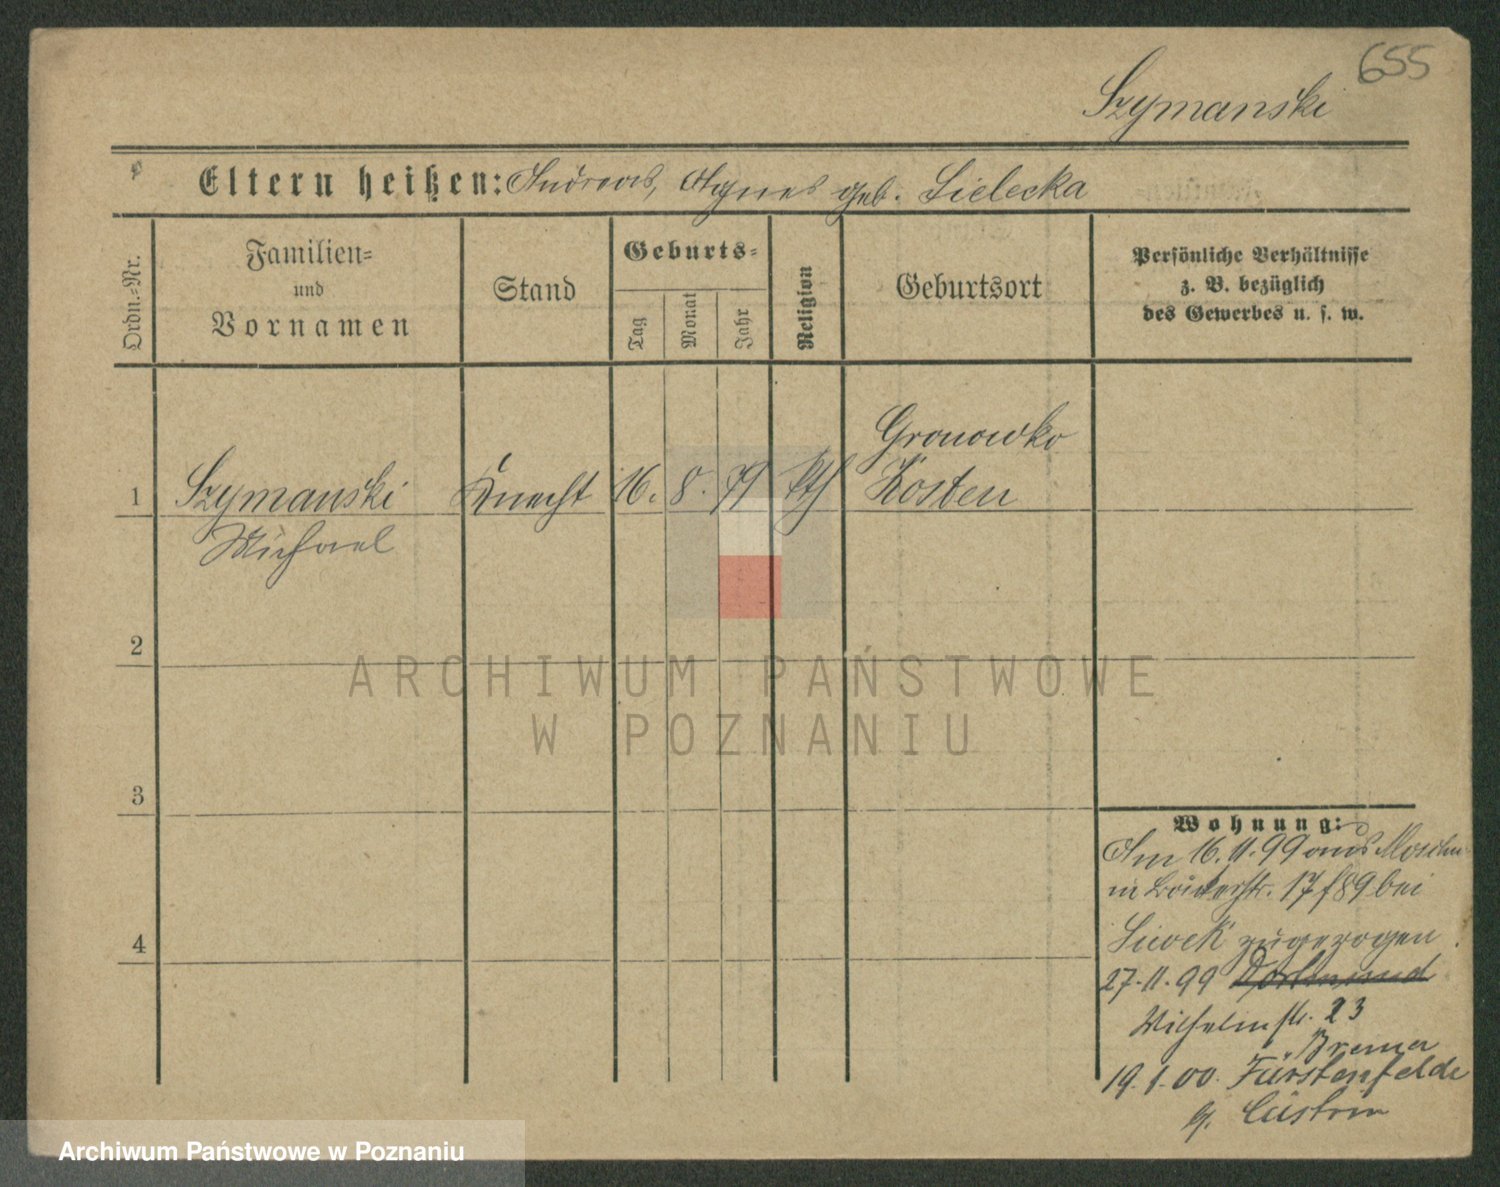 655
Szymanski
Eltern heißen: Andreas, Agnes geb. Sielecka
Ordn.-Nr.
Familien-
und
Vornamen
Stand
Geburts-
Tag
Monat
Jahr
Religion
Geburtsort
Persönliche Verhältnisse
z. B. bezüglich
des Gewerbes u. s. w.
Gronowko
1 Szymanski Knecht 16. 8. 79 kth Kosten
Michael
2
ARCHIWUM PAŃSTWOWE
W POZNANIU
3
Wohnung:
Am 16.11.99 aus
in Bäckerstr. 17 bei
zugezogen.
4
27.11.99 Dortmund
Wilhelmstr. 23
Bremer
19.1.00. Fürstenfelde
Cüstrin
Archiwum Państwowe w Poznaniu